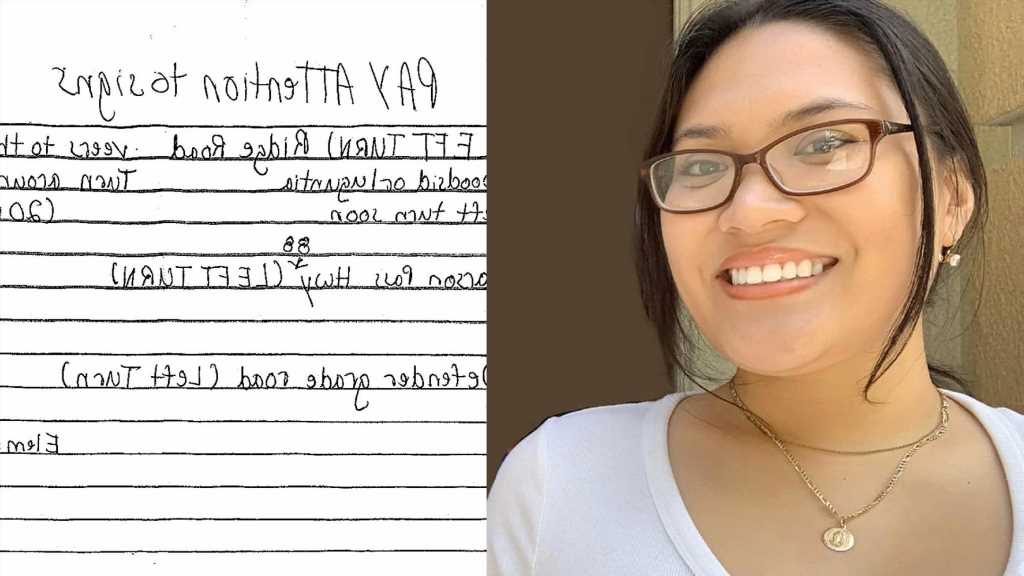 PAY ATTention to signs
EFT TURN) Ridge Road veers to th
Turn aroun
eft turn soon (20
88
arson Pass Hwy (LEFT TURN)
Defender grade road (Left Turn)
Elem